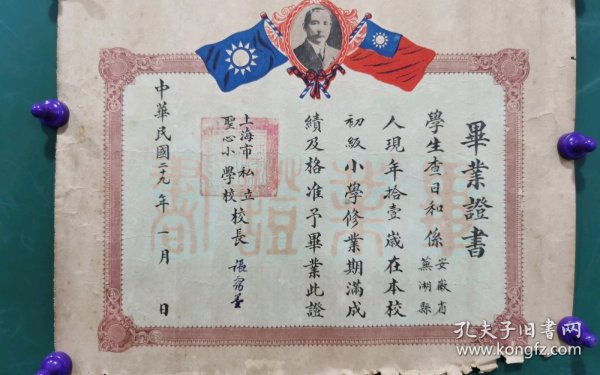 畢業證書
學生查日和係安徽省蕪湖縣
人現年拾壹歲在本校
初級小學修業期滿成
績及格准予畢業此證
上海市私立聖心小學校校長
中華民國二十九年一月 日
孔夫子旧书网
www.kongfz.com